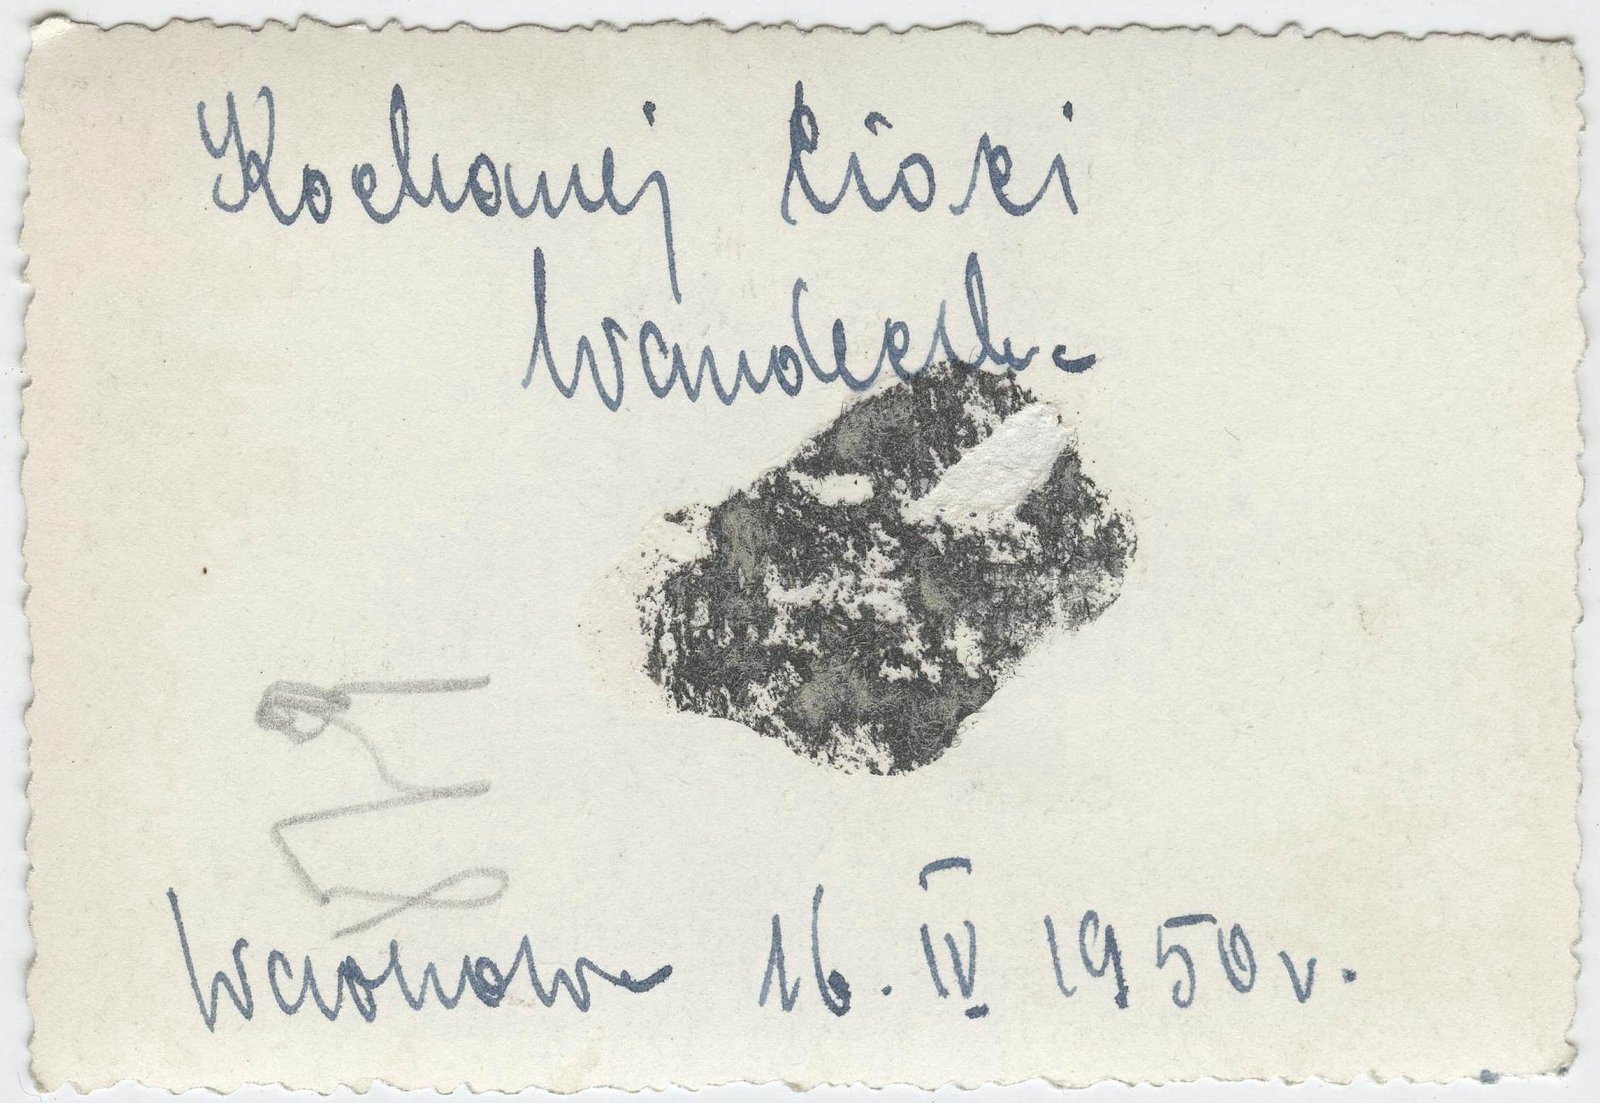 Kochanej Cioci
Wandeczka
16. IV 1950 r.